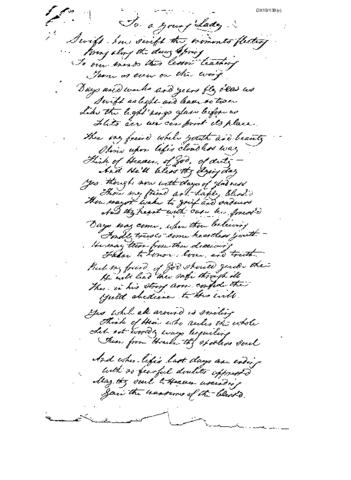 To a young Lady
Swift - how swift the moments fleeting
Bring along the
To our minds this lesson teaching
Time is ever on the wing
Days and weeks and years fly o'er us
Swift as light and
Like the light
Flits ere we can its place
Then my friend while youth and beauty
Shine upon life's cloudless way
Think of Heaven, of God, of duty -
And He'll bless thy dying day
Yes though now with days of gladness
Thou my friend art safely bless'd
Thou mayest wake to grief and sadness
And thy heart with care be
Days may come, when thou believing
Fondly
He may turn from thee deceiving
to honor, love, and truth.
But my friend, if God should guide thee
He will lead thee safe through all
Then in his strong arm confide thee
Yield obedience to His will
Yes while all around is smiling
Think of Him who rules the whole
Let not worldly ways beguiling
Turn from Heaven thy spotless soul
And when life's last days are ending
With no fearful doubts oppress'd
May thy soul to Heaven ascending
Gain the mansions of the bless'd.